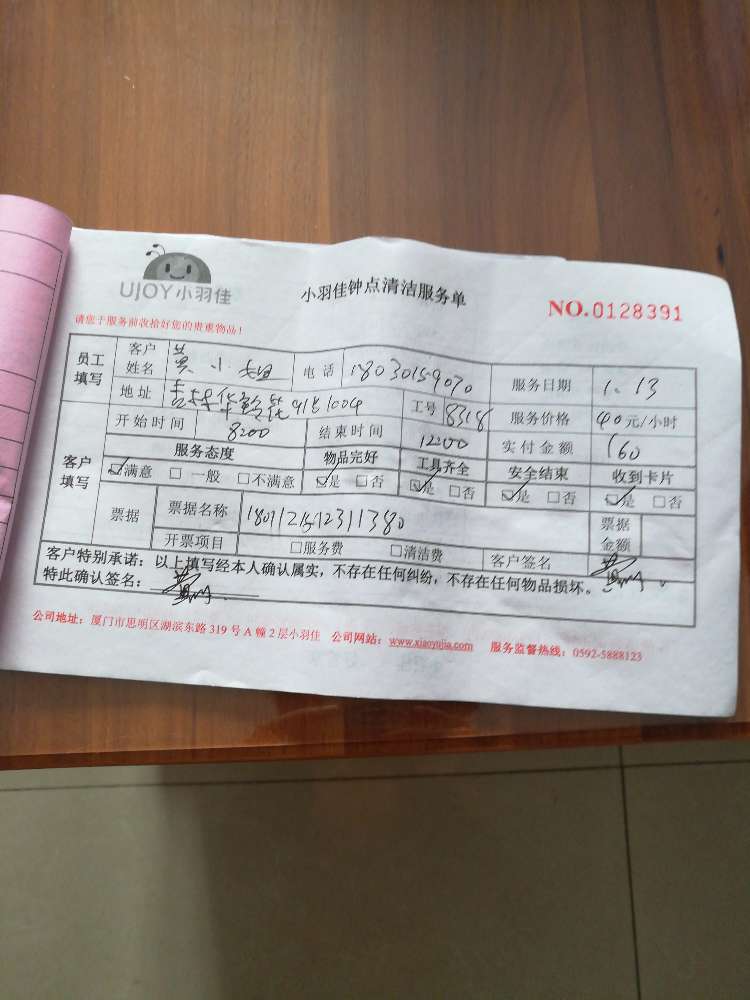 UJOY小羽佳
小羽佳钟点清洁服务单
NO.0128391
请您于服务前收拾好您的贵重物品！
员工填写 客户姓名 黄小姐 电话 18030159070 服务日期 1.13
地址 91号1004 工号 8318 服务价格 40元/小时
客户填写 开始时间 8:00 结束时间 12:00 实付金额 160
服务态度 物品完好 工具齐全 安全结束 收到卡片
☑满意 □一般 □不满意 ☑是 □否 ☑是 □否 ☑是 □否 ☑是 □否
票据 票据名称 票据金额
开票项目 □服务费 □清洁费 客户签名
客户特别承诺：以上填写经本人确认属实，不存在任何纠纷，不存在任何物品损坏。
特此确认签名：
公司地址：厦门市思明区湖滨东路319号A幢2层小羽佳 公司网站：www.xiaoyujia.com 服务监督热线：0592-5888123